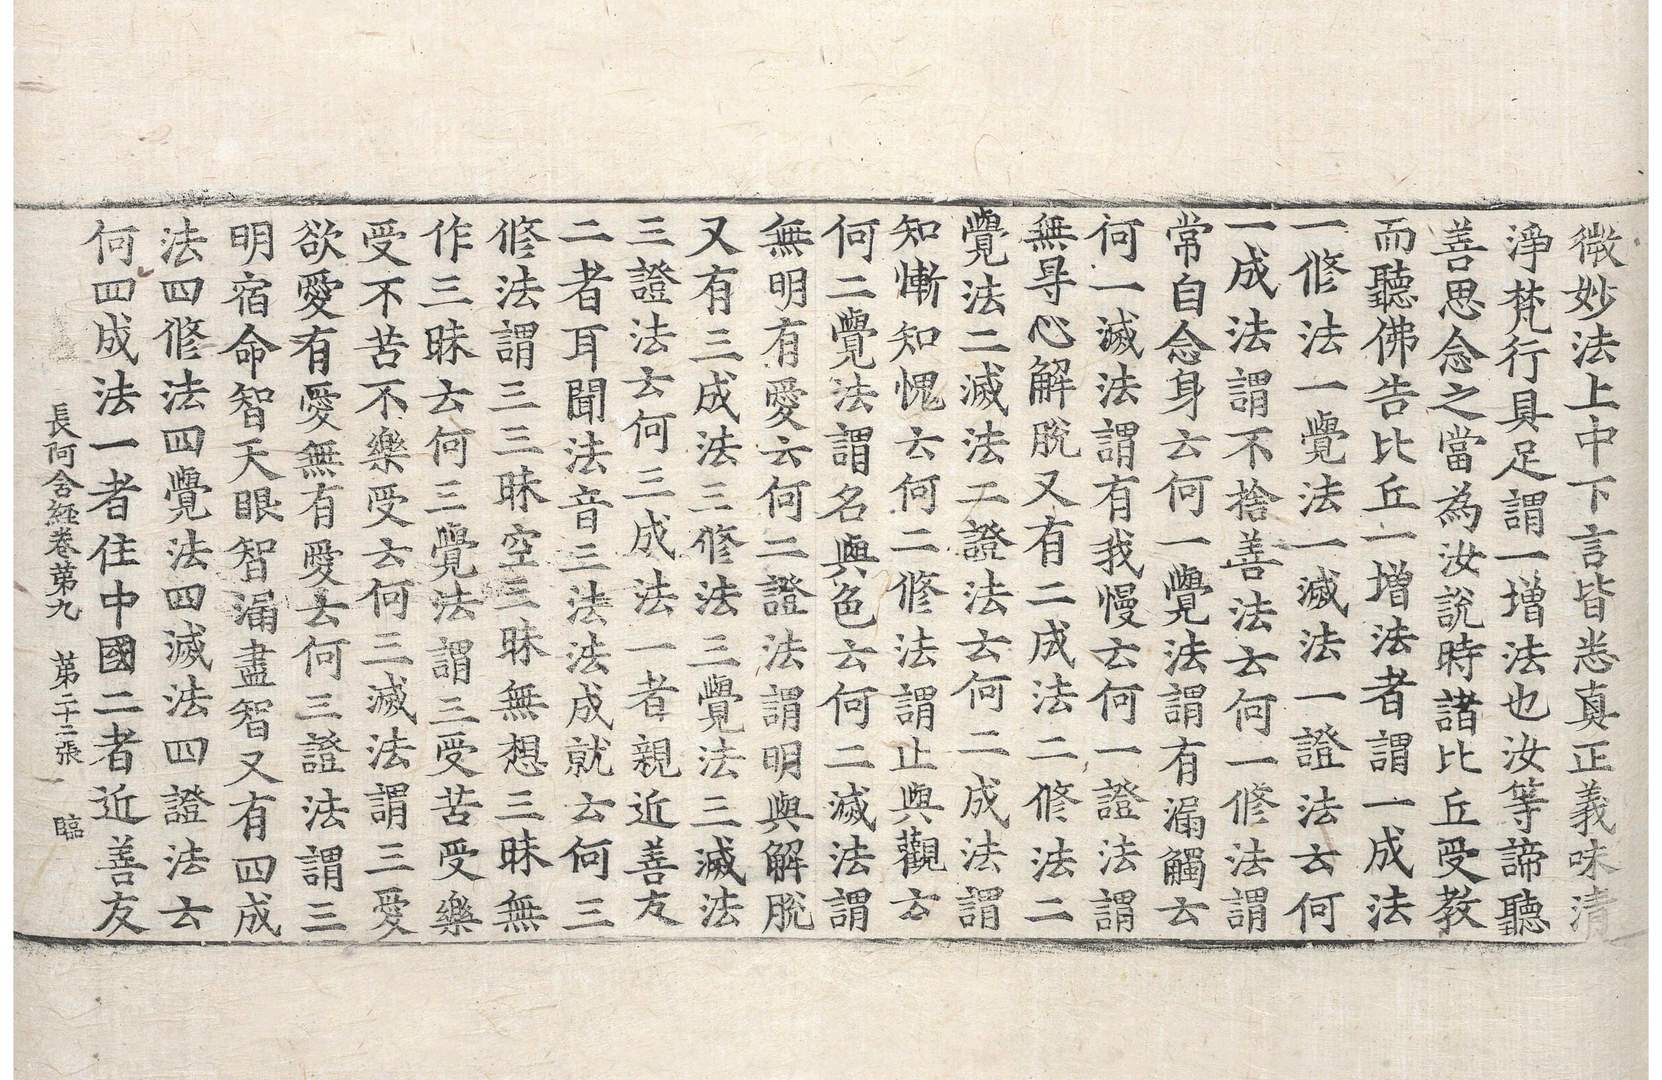 微妙法上中下言皆悉真正義味清
淨梵行具足謂一增法也汝等諦聽
善思念之當為汝說時諸比丘受教
而聽佛告比丘一增法者謂一成法
一修法一覺法一滅法一證法云何
一成法謂不捨善法云何一修法謂
常自念身云何一覺法謂有漏觸云
何一滅法謂有我慢云何一證法謂
無㝵心解脫又有二成法二修法二
覺法二滅法二證法云何二成法謂
知慚知愧云何二修法謂止與觀云
何二覺法謂名與色云何二滅法謂
無明有愛云何二證法謂明與解脫
又有三成法三修法三覺法三滅法
三證法云何三成法一者親近善友
二者耳聞法音三法法成就云何三
修法謂三三昧空三昧無想三昧無
作三昧云何三覺法謂三受苦受樂
受不苦不樂受云何三滅法謂三愛
欲愛有愛無有愛云何三證法謂三
明宿命智天眼智漏盡智又有四成
法四修法四覺法四滅法四證法云
何四成法一者住中國二者近善友
長阿含経卷苐九 苐二十二張 臨